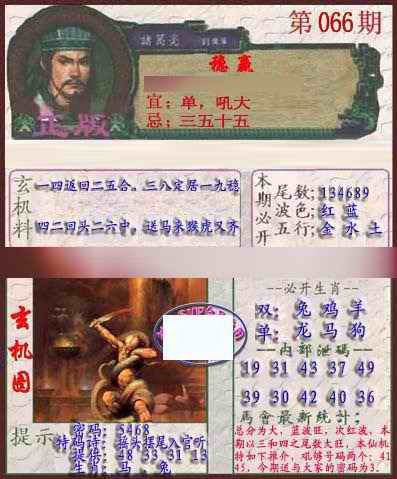 第066期
諸葛亮
穩贏
正版
宜：单，吼大
忌：三五十五
玄机料
一四返回二五合。三八定居一九穏
四二回头二六中，送马来猴虎又齐
本期必开
尾数：134689
波色：红 蓝
五行：金 水 土
玄机图
--必开生肖--
双：兔 鸡 羊
单：龙 马 狗
--内部泄码--
19 31 43 37 49
39 30 42 40 36
馬會最新統計：
总分为大，蓝波旺，次红波，本
期以三和四之尾数大旺，本仙机
特如下推介，吼够号码两个：41
45，今期送与大家的密码为3.
提示
密码：5468
特码诗：接头摆尾入官听
提倍：48 33 31 13
生肖：马，兔